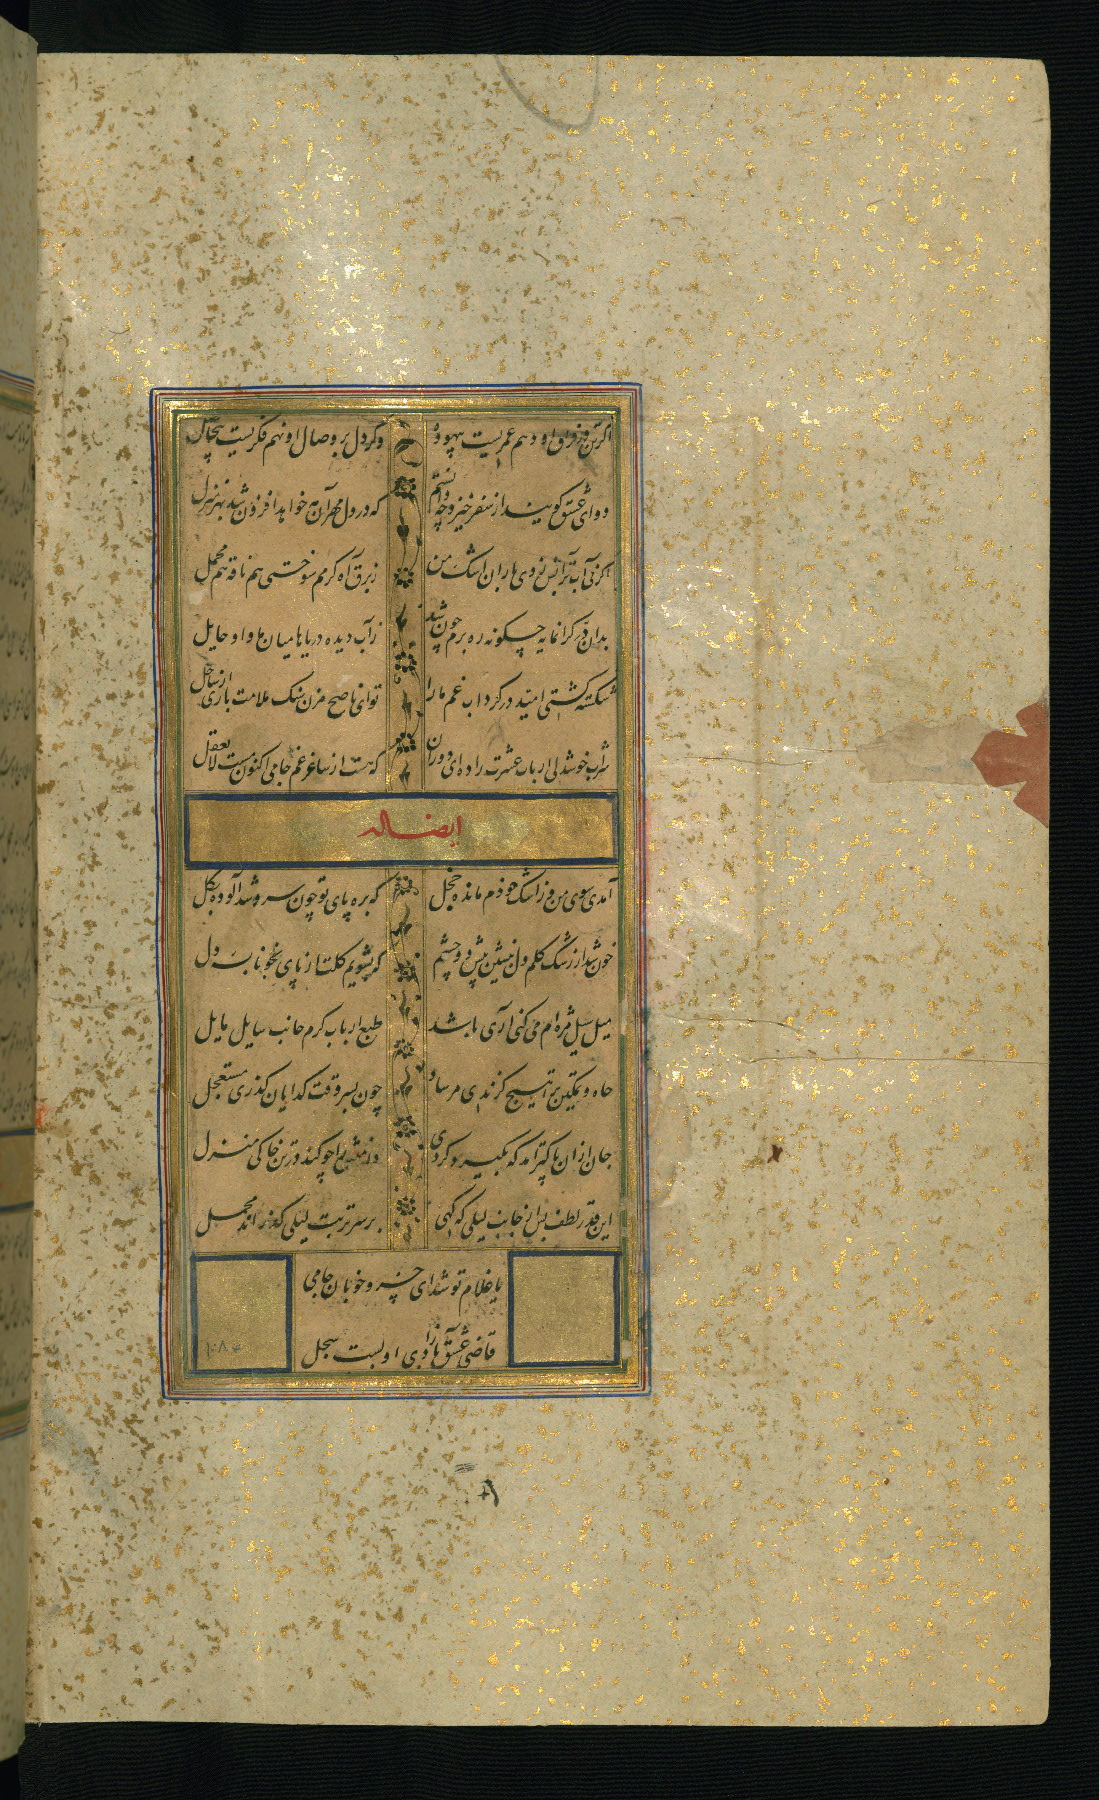 اگر تن در فراق او دهم عمریست بیهوده وگر دل بر وصال او نهم فکریست
دوای عشق گویند از سفر خیزد چه دانستم که در دل مهر آن خواهد افزون شد بهر منزل
اگر نی آب بر آتش زدی باران اشک من ز برق آه گرمم سوختی هم ناقه هم محمل
بدان در گرانمایه چگونه ره برم چون شد ز آب دیده دریاها میان ما و او حایل
شکسته کشتی امید در گرداب غم ما را تو ای ناصح مزن سنگ ملامت باری از ساحل
شراب خوشدلی ارباب عشرت را ده ای دوران که هست از ساغر غم جامی اکنون مست لایعقل
ایضا له
آمدی سوی من و ز اشک خودم مانده خجل که بره پای تو چون سرو شد آلوده بگل
خون شد از رشک گلم دل منشین پیش دو چشم گر بشویم گلت از پای بخونابه دل
میل سیل مژه ام می کنی آری باشد طبع ارباب کرم جانب سایل مایل
جاه و تمکین ترا هیچ گزندی مرساد چون بسر وقت گدایان گذری مستعجل
جان از آن پاکتر آمد که بگیرد گردی در تن خاکی منزل
این قدر لطف بس از جانب لیلی که گهی بر سر تربت لیلی گذراند محمل
با غلام تو شد ای خسرو خوبان جامی
قاضی عشق بآزادی او بست سجل